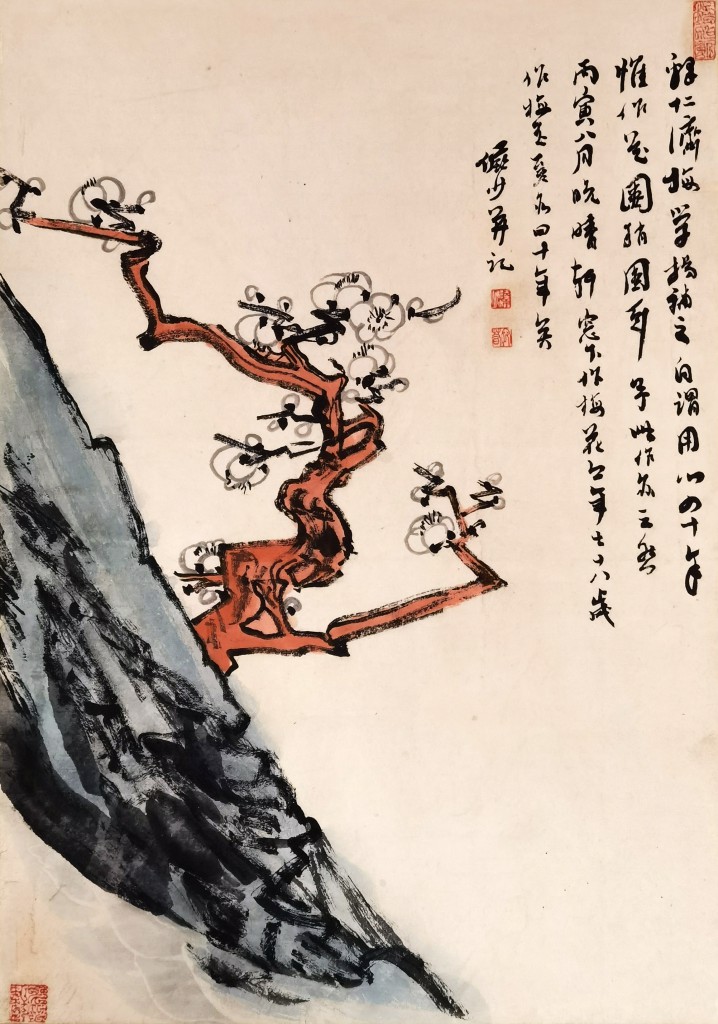 釋仁濟梅学楊補之自谓用心四十年
惟作花圈稍圓耳予此作亦云然
丙寅八月晚晴轩窓下作梅花年七十八歲
作梅亦四十年矣
儼少并记